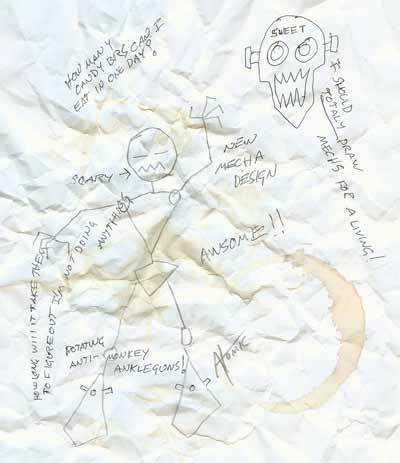 HOW MANY
CANDY BARS CAN I
EAT IN ONE DAY?
SWEET
I SHOULD
TOTALY DRAW
MECHS FOR A LIVING!
NEW
MECHA
DESIGN
SCARY →
AWSOME!!
HOW LONG WILL IT TAKE THEM
TO FIGURE OUT I'M NOT DOING
ANYTHING
ROTATING
ANTI-MONKEY
ANKLEGUNS!
Atomic